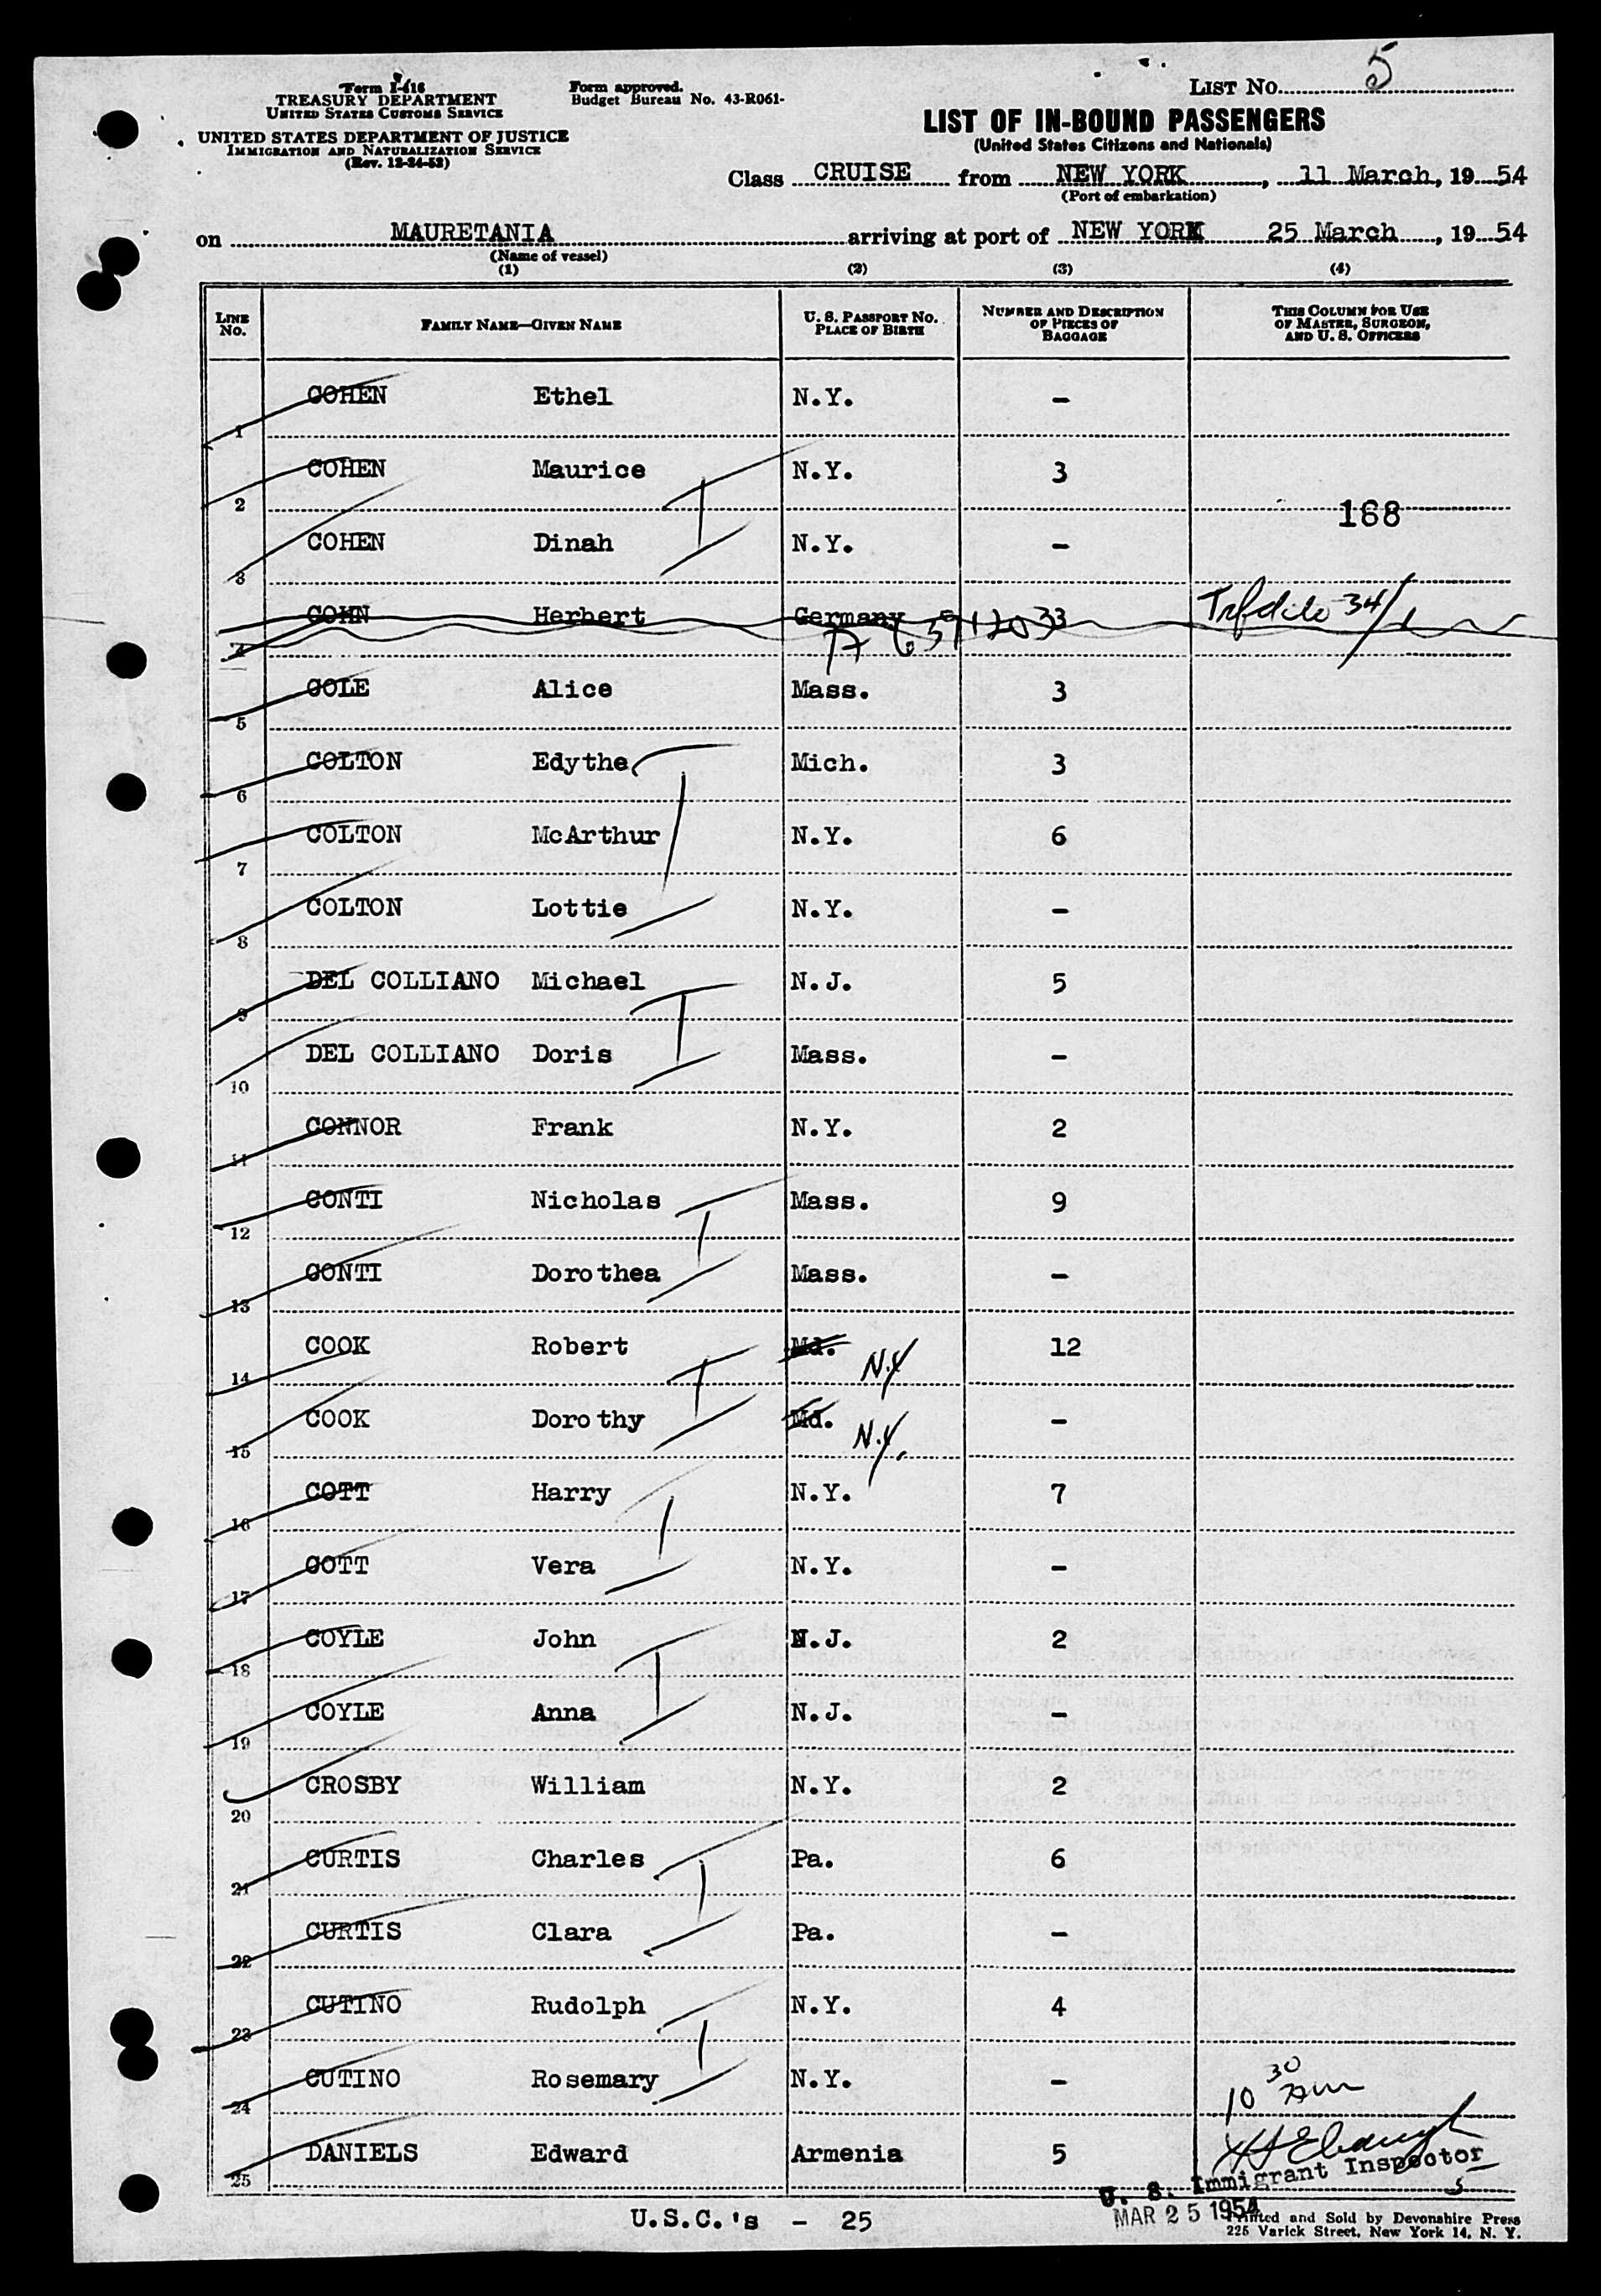 LIST NO. 5
Form I-416
TREASURY DEPARTMENT
UNITED STATES CUSTOMS SERVICE
UNITED STATES DEPARTMENT OF JUSTICE
IMMIGRATION AND NATURALIZATION SERVICE
(Rev. 12-24-52)
Form approved.
Budget Bureau No. 43-R061-
LIST OF IN-BOUND PASSENGERS
(United States Citizens and Nationals)
Class CRUISE from NEW YORK, 11 March, 1954
(Port of embarkation)
on MAURETANIA arriving at port of NEW YORK 25 March, 1954
(Name of vessel)
(1) (2) (3) (4)
LINE No. FAMILY NAME—GIVEN NAME U. S. PASSPORT NO. PLACE OF BIRTH NUMBER AND DESCRIPTION OF PIECES OF BAGGAGE THIS COLUMN FOR USE OF MASTER, SURGEON, AND U. S. OFFICERS
1 COHEN Ethel N.Y. -
2 COHEN Maurice N.Y. 3
168
3 COHEN Dinah N.Y. -
4 COHN Herbert Germany 3
5 COLE Alice Mass. 3
6 COLTON Edythe Mich. 3
7 COLTON McArthur N.Y. 6
8 COLTON Lottie N.Y. -
9 DEL COLLIANO Michael N.J. 5
10 DEL COLLIANO Doris Mass. -
11 CONNOR Frank N.Y. 2
12 CONTI Nicholas Mass. 9
13 CONTI Dorothea Mass. -
14 COOK Robert Md. N.Y 12
15 COOK Dorothy Md. N.Y. -
16 COTT Harry N.Y. 7
17 COTT Vera N.Y. -
18 COYLE John N.J. 2
19 COYLE Anna N.J. -
20 CROSBY William N.Y. 2
21 CURTIS Charles Pa. 6
22 CURTIS Clara Pa. -
23 CUTINO Rudolph N.Y. 4
24 CUTINO Rosemary N.Y. -
10 30 Am
25 DANIELS Edward Armenia 5
U. S. Immigrant Inspector
U.S.C.'s - 25
MAR 25 1954
Printed and Sold by Devonshire Press
225 Varick Street, New York 14, N. Y.